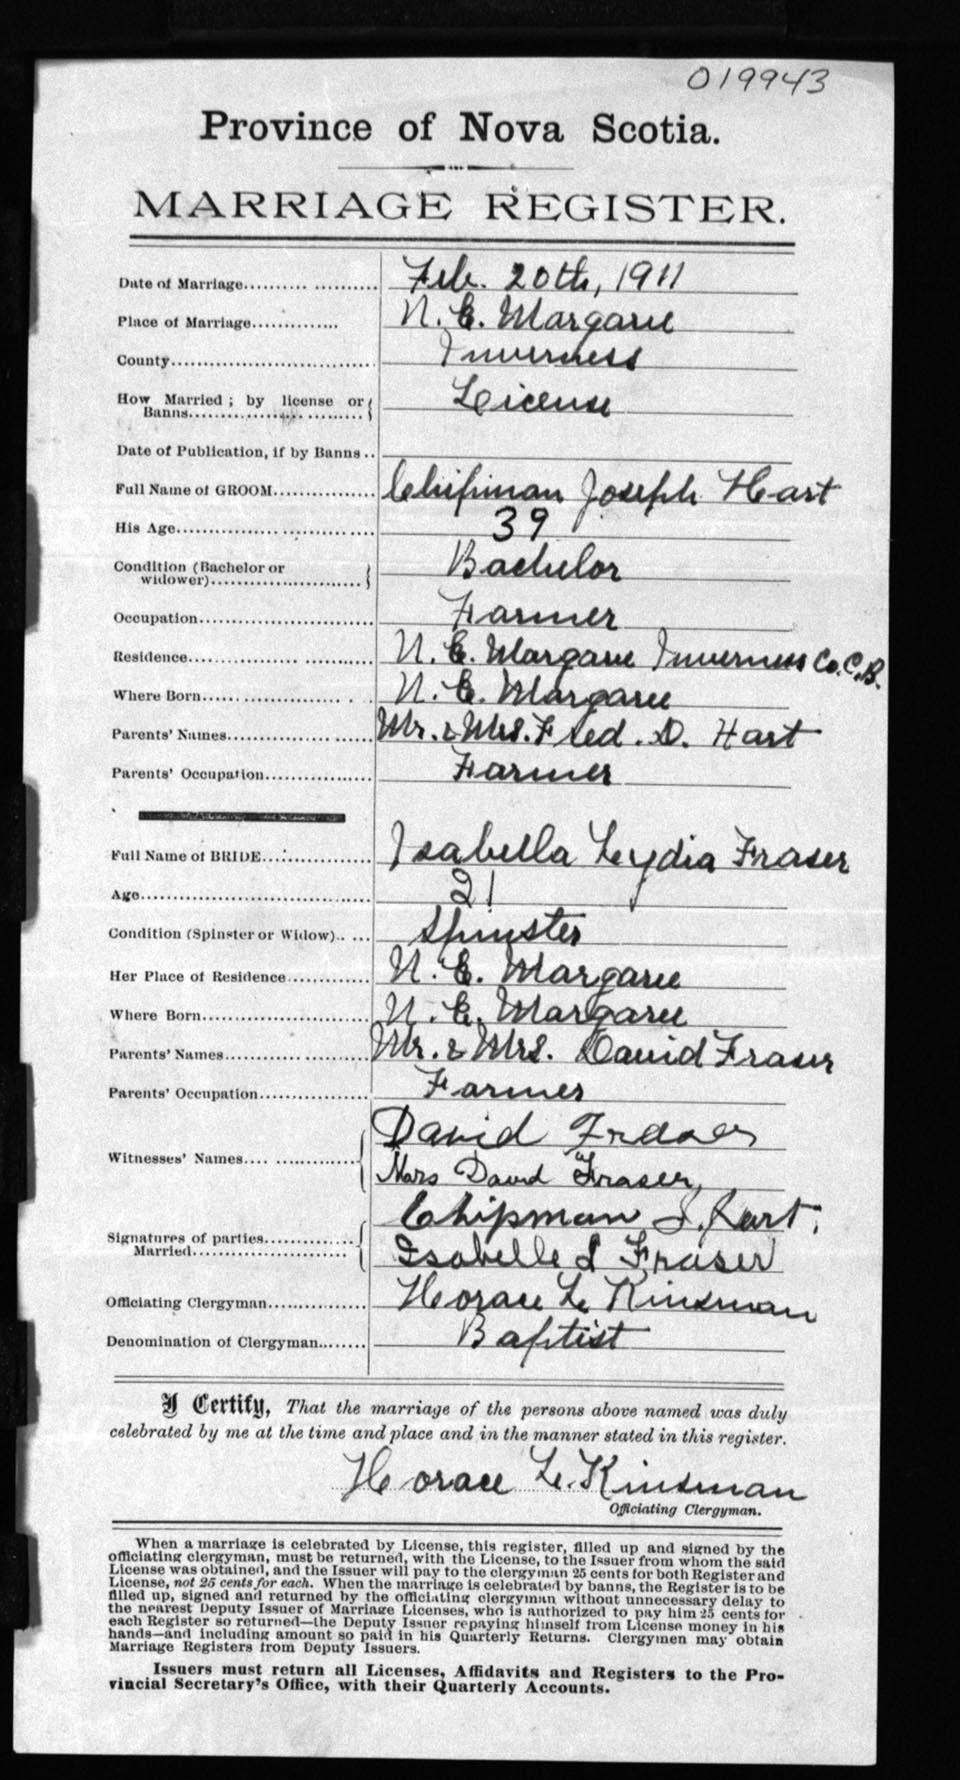 019943
Province of Nova Scotia.
MARRIAGE REGISTER.
Date of Marriage.......... ........... Feb. 20th, 1911
Place of Marriage............. N. E. Margaree
County................................. Inverness
How Married; by license or
Banns................................. License
Date of Publication, if by Banns..
Full Name of GROOM................ Chipman Joseph Hart
His Age................................. 39
Condition (Bachelor or
widower)............................ Bachelor
Occupation............................. Farmer
Residence................ ........... N. E. Margaree Inverness Co. C.B.
Where Born................ . . N. E. Margaree
Parents' Names................ ...... Mr. & Mrs. Fred. D. Hart
Parents' Occupation.................. Farmer
Full Name of BRIDE.................. Isabella Lydia Fraser
Age..................................... 21
Condition (Spinster or Widow).. ... Spinster
Her Place of Residence............. N. E. Margaree
Where Born............................ N. E. Margaree
Parents' Names................ ....... Mr. & Mrs. David Fraser
Parents' Occupation.................. Farmer
David Fraser
Witnesses' Names.... ...............
Mars David Fraser,
Chipman J. Hart.
Signatures of parties................
Married.........................
Isabelle L Fraser
Officiating Clergyman................ Horace L. Kinsman
Denomination of Clergyman........ Baptist
I Certify, That the marriage of the persons above named was duly
celebrated by me at the time and place and in the manner stated in this register.
Horace L. Kinsman
Officiating Clergyman.
When a marriage is celebrated by License, this register, filled up and signed by the
officiating clergyman, must be returned, with the License, to the Issuer from whom the said
License was obtained, and the Issuer will pay to the clergyman 25 cents for both Register and
License, not 25 cents for each. When the marriage is celebrated by banns, the Register is to be
filled up, signed and returned by the officiating clergyman without unnecessary delay to
the nearest Deputy Issuer of Marriage Licenses, who is authorized to pay him 25 cents for
each Register so returned—the Deputy Issuer repaying himself from License money in his
hands—and including amount so paid in his Quarterly Returns. Clergymen may obtain
Marriage Registers from Deputy Issuers.
Issuers must return all Licenses, Affidavits and Registers to the Pro-
vincial Secretary's Office, with their Quarterly Accounts.